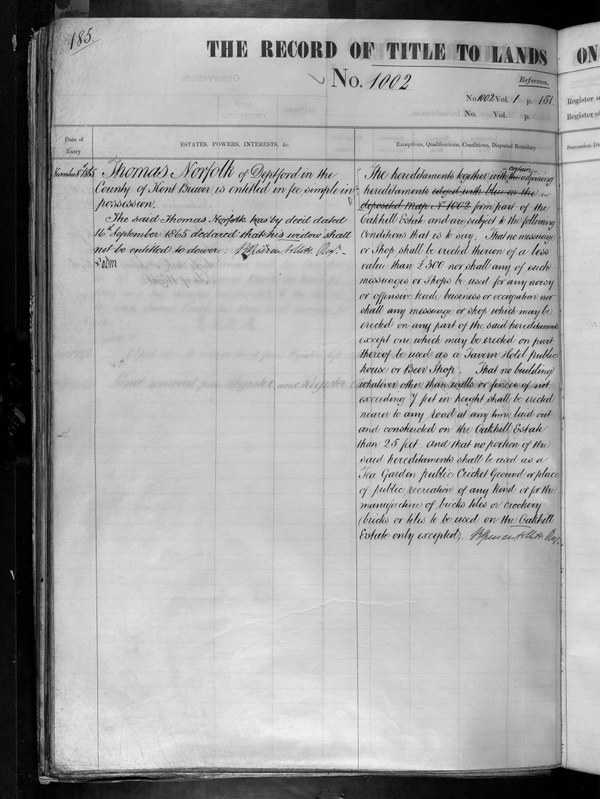 185.
THE RECORD OF TITLE TO LANDS
No. 1002
Reference.
No. 1002 Vol. 1 p. 151
No. Vol. p.
Date of
Entry
ESTATES, POWERS, INTERESTS, &c
Exceptions, Qualifications, Conditions, Disputed Boundary
November 8th 1865
Thomas Norfolk of Deptford in the
County of Kent Brewer is entitled in fee simple in
possession.
The said Thomas Norfolk has by deed dated
16th September 1865 declared that his widow shall
not be entitled to dower.
The hereditaments together with certain
the adjoining
hereditaments edged with blue on the
deposited map No 1002 form part of the
Oakhill Estate and are subject to the following
Conditions that is to say. That no messuage
or Shop shall be erected thereon of a less
value than £300 nor shall any of such
messuages or Shops be used for any noisy
or offensive trade business or occupation nor
shall any messuage or shop which may be
erected on any part of the said hereditaments
except one which may be erected on part
thereof be used as a Tavern Hotel public
house or Beer Shop. That no building
whatever other than walls or fences of not
exceeding 7 feet in height shall be erected
nearer to any road at any time laid out
and constructed on the Oakhill Estate
than 25 feet and that no portion of the
said hereditaments shall be used as a
Tea Garden public Cricket Ground or place
of public recreation of any kind or for the
manufacture of bricks tiles or crockery
(bricks or tiles to be used on the Oakhill
Estate only excepted).
ON
Register o
Register of
Succession, D